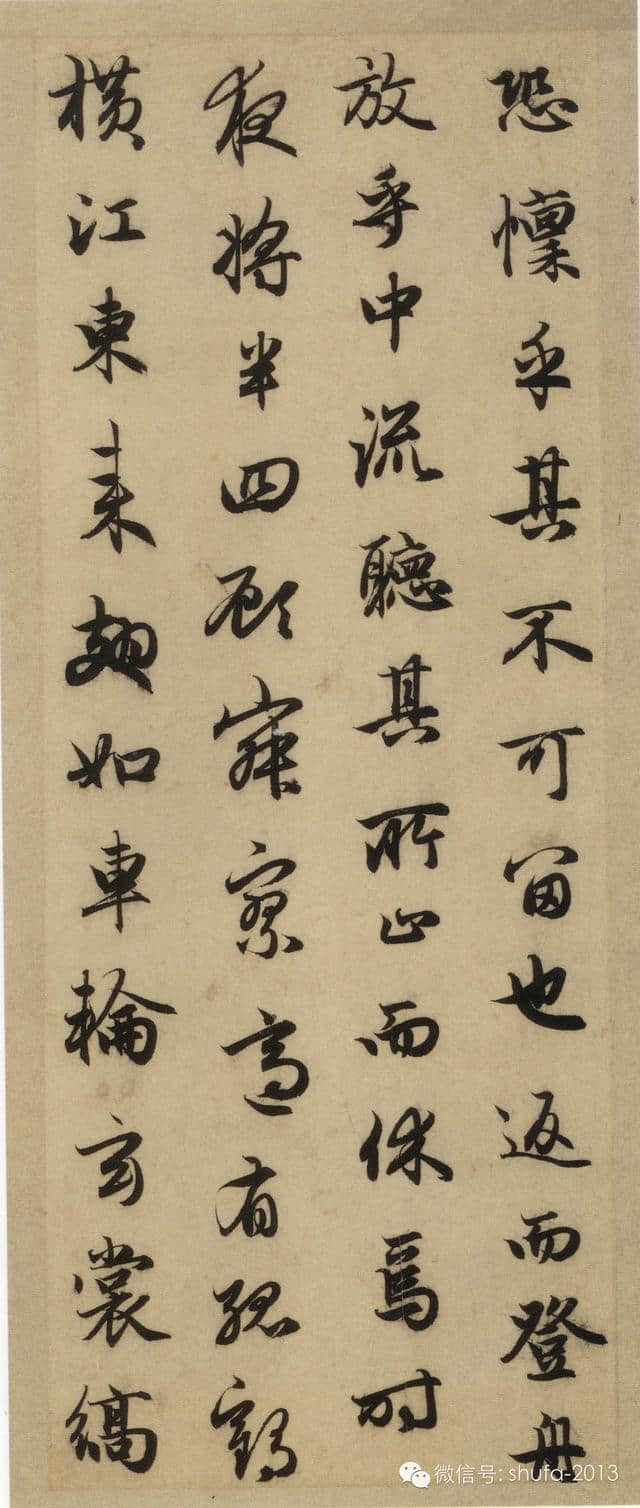 恐懔乎其不可留也返而登舟
放乎中流聽其所止而休焉时
夜将半四顾寂寥適有孤鹤
横江東来翅如車輪玄裳縞
微信号: shufa-2013